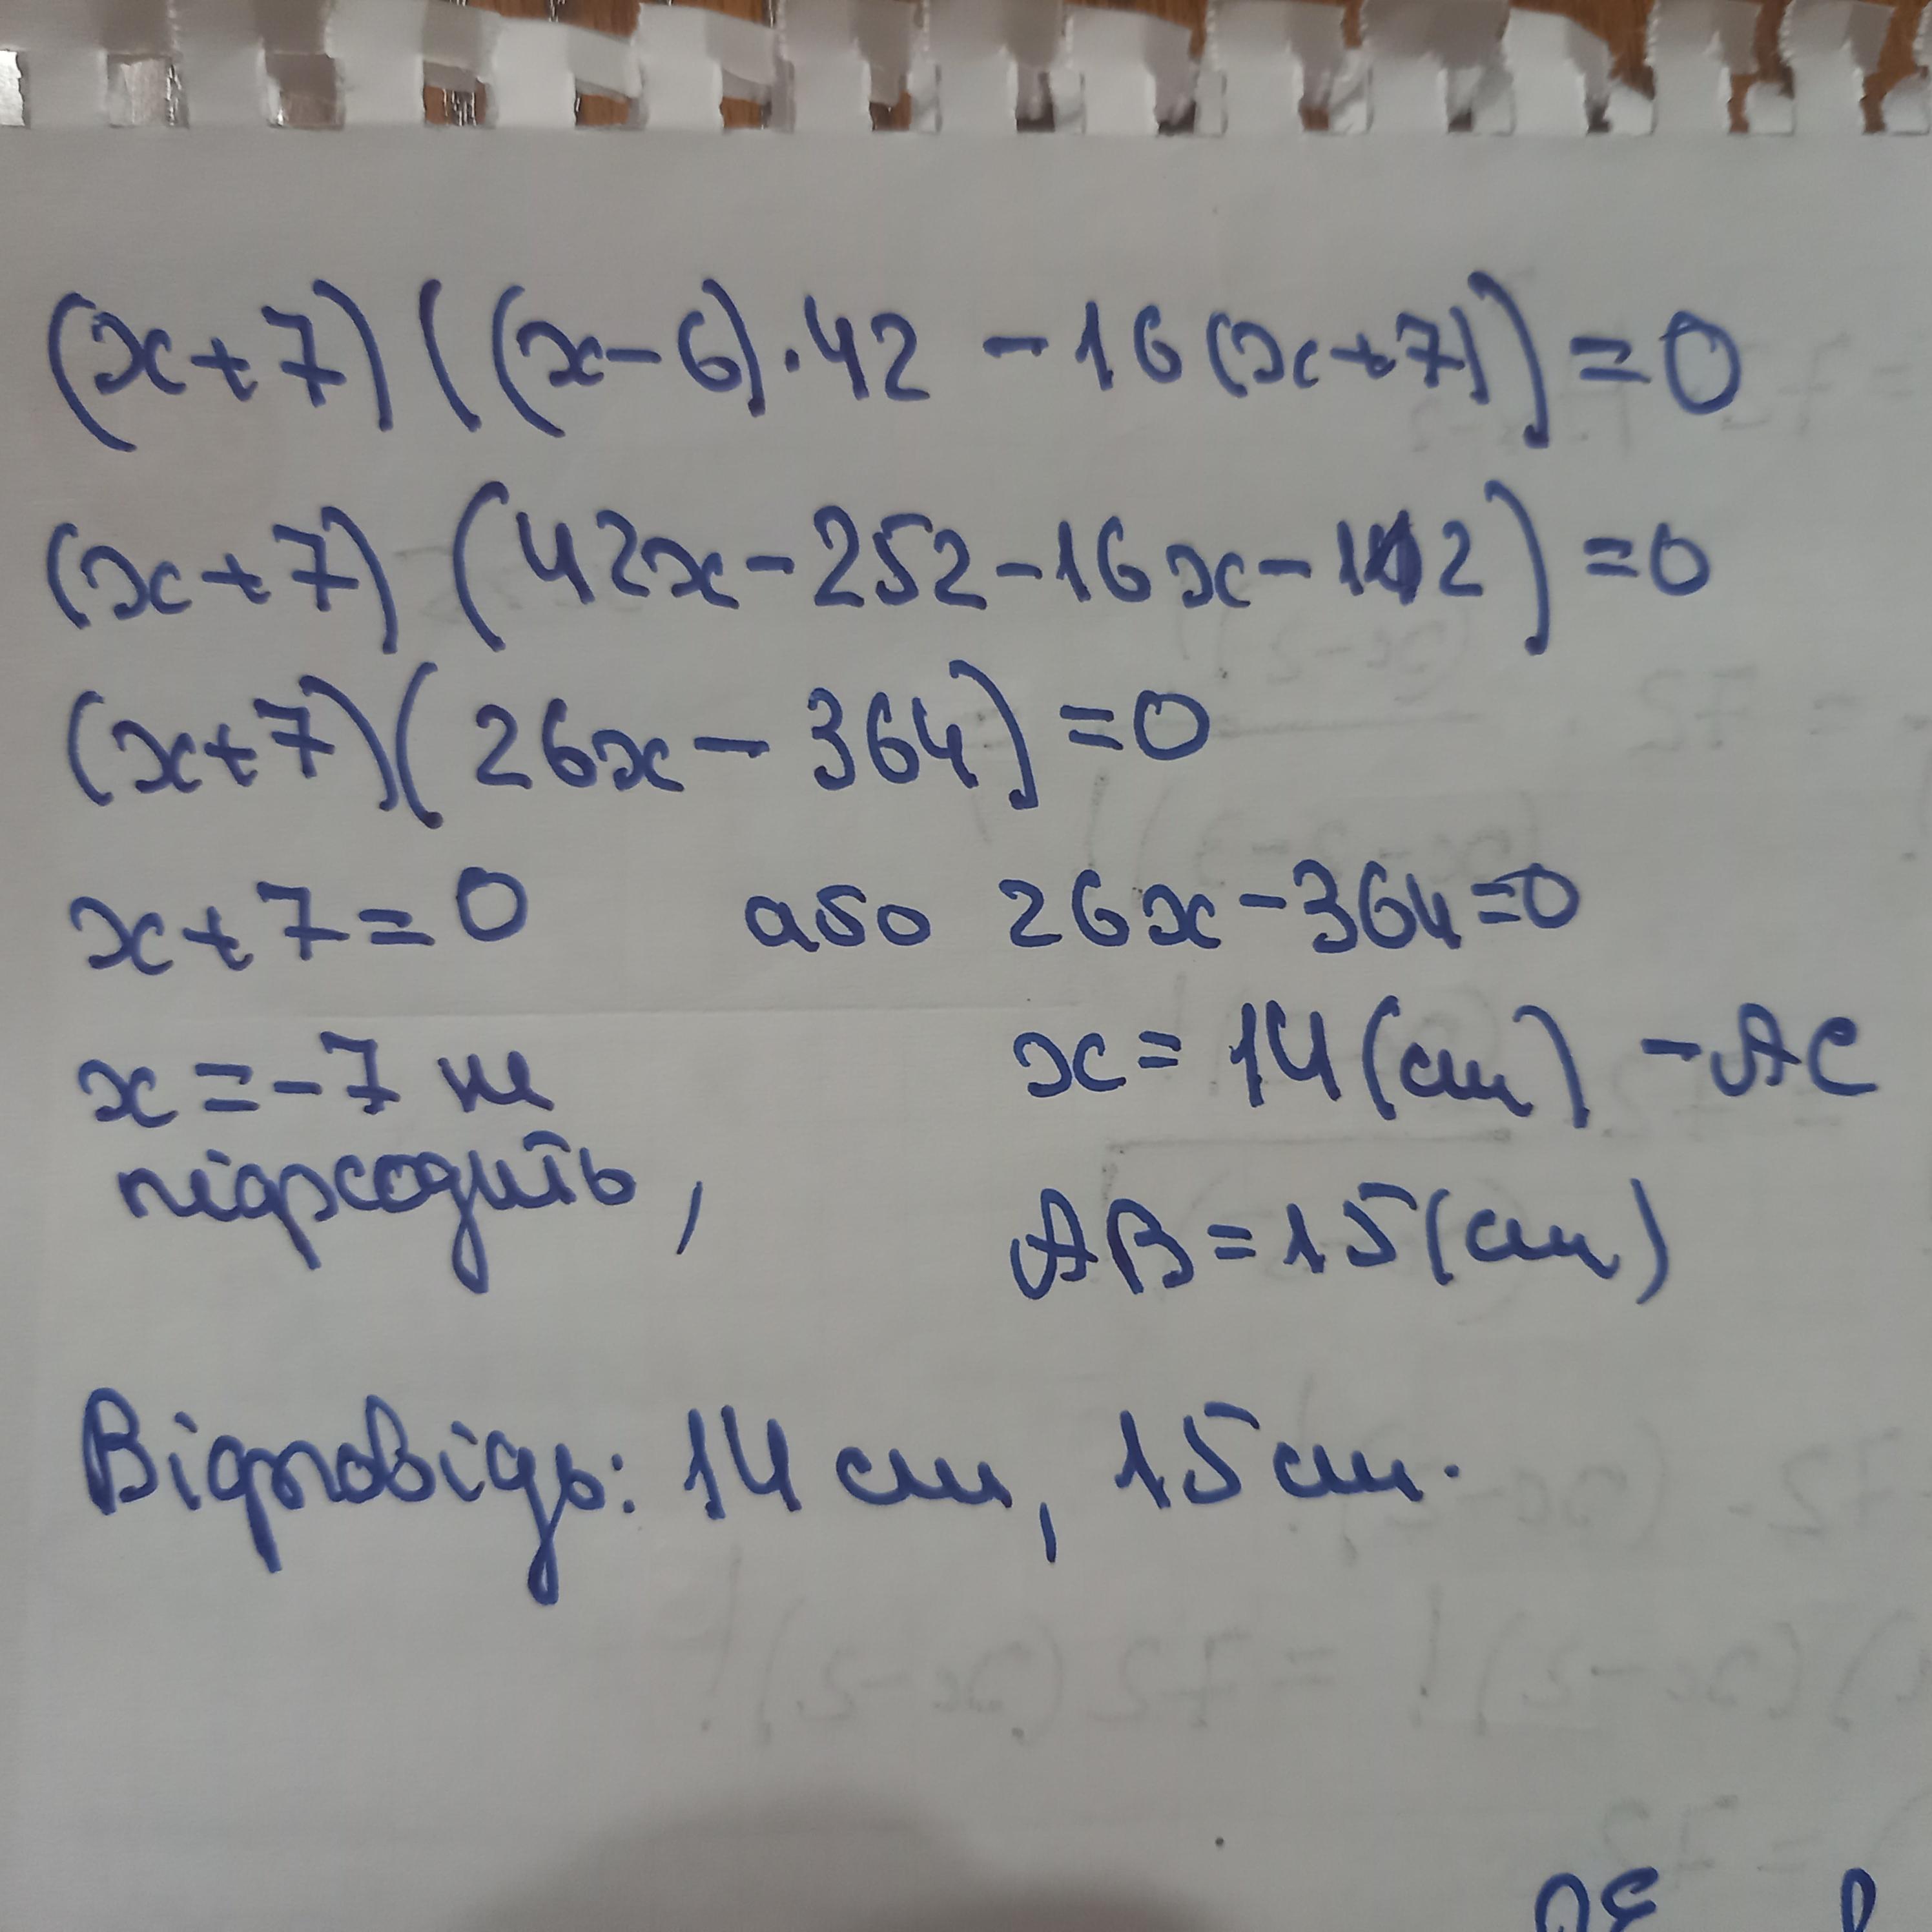 (x+7)((x-6)·42 -16(x+7))=0
(x+7)(42x-252-16x-112)=0
(x+7)(26x-364)=0
x+7=0 або 26x-364=0
x=-7 не x=14(см) -AC
підходить, AB=15(см)
Відповідь: 14 см, 15 см.